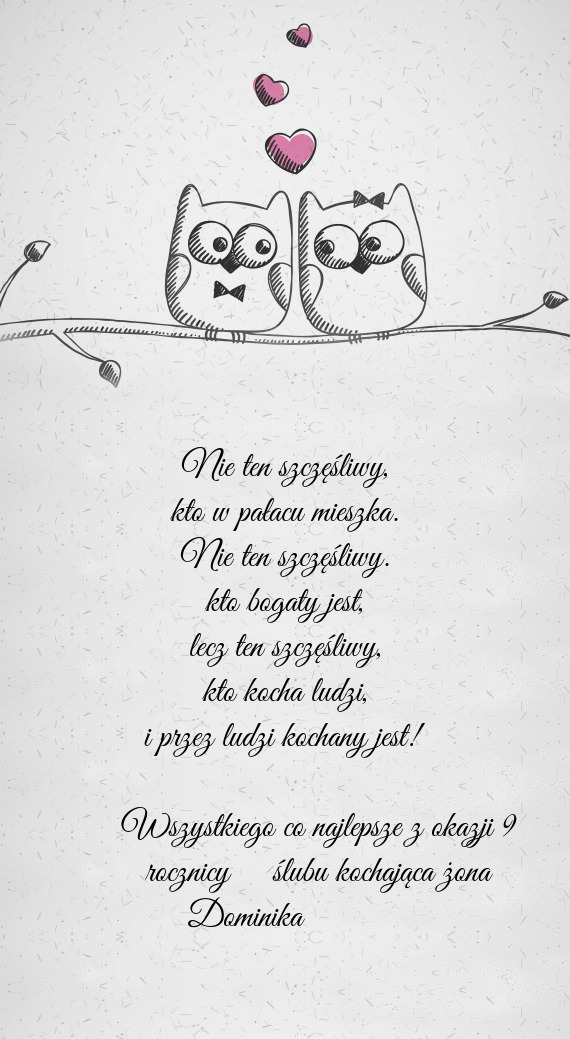 Nie ten szczęśliwy,
kto w pałacu mieszka.
Nie ten szczęśliwy.
kto bogaty jest,
lecz ten szczęśliwy,
kto kocha ludzi,
i przez ludzi kochany jest!
Wszystkiego co najlepsze z okazji 9
rocznicy ślubu kochająca żona
Dominika